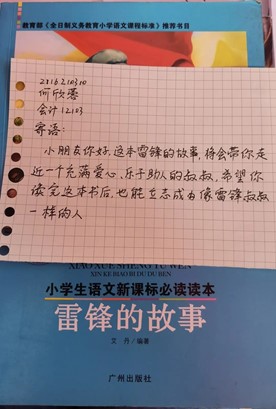 教育部《全日制义务教育小学语文课程标准》推荐书目
2316210310
何欣蓉
会计12103
寄语:
小朋友你好,这本雷锋的故事,将会带你走
近一个充满爱心、乐于助人的叔叔,希望你
读完这本书后,也能立志成为像雷锋叔叔
一样的人
XIAO XUE SHENG YU WEN
XIN KE BIAO BI DU DU BEN
小学生语文新课标必读读本
雷锋的故事
文 丹/编著
广州出版社